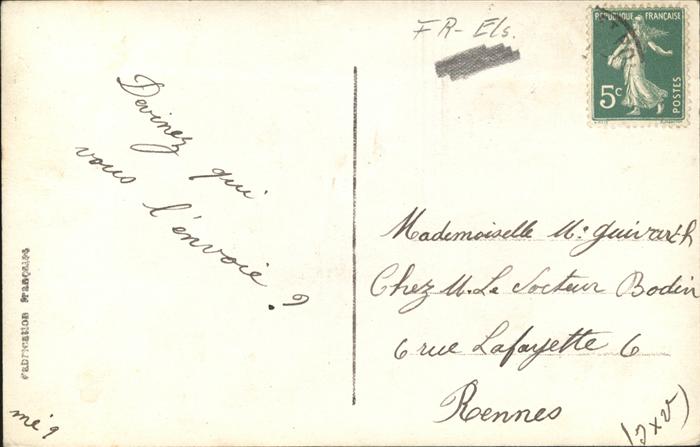 FR-Els.
RÉPUBLIQUE FRANÇAISE
5c
POSTES
Devinez qui
vous l'envoie?
Mademoiselle M. Guivarch
Chez M. Le Docteur Bodin
6 rue Lafayette 6
Rennes
FABRICATION FRANÇAISE